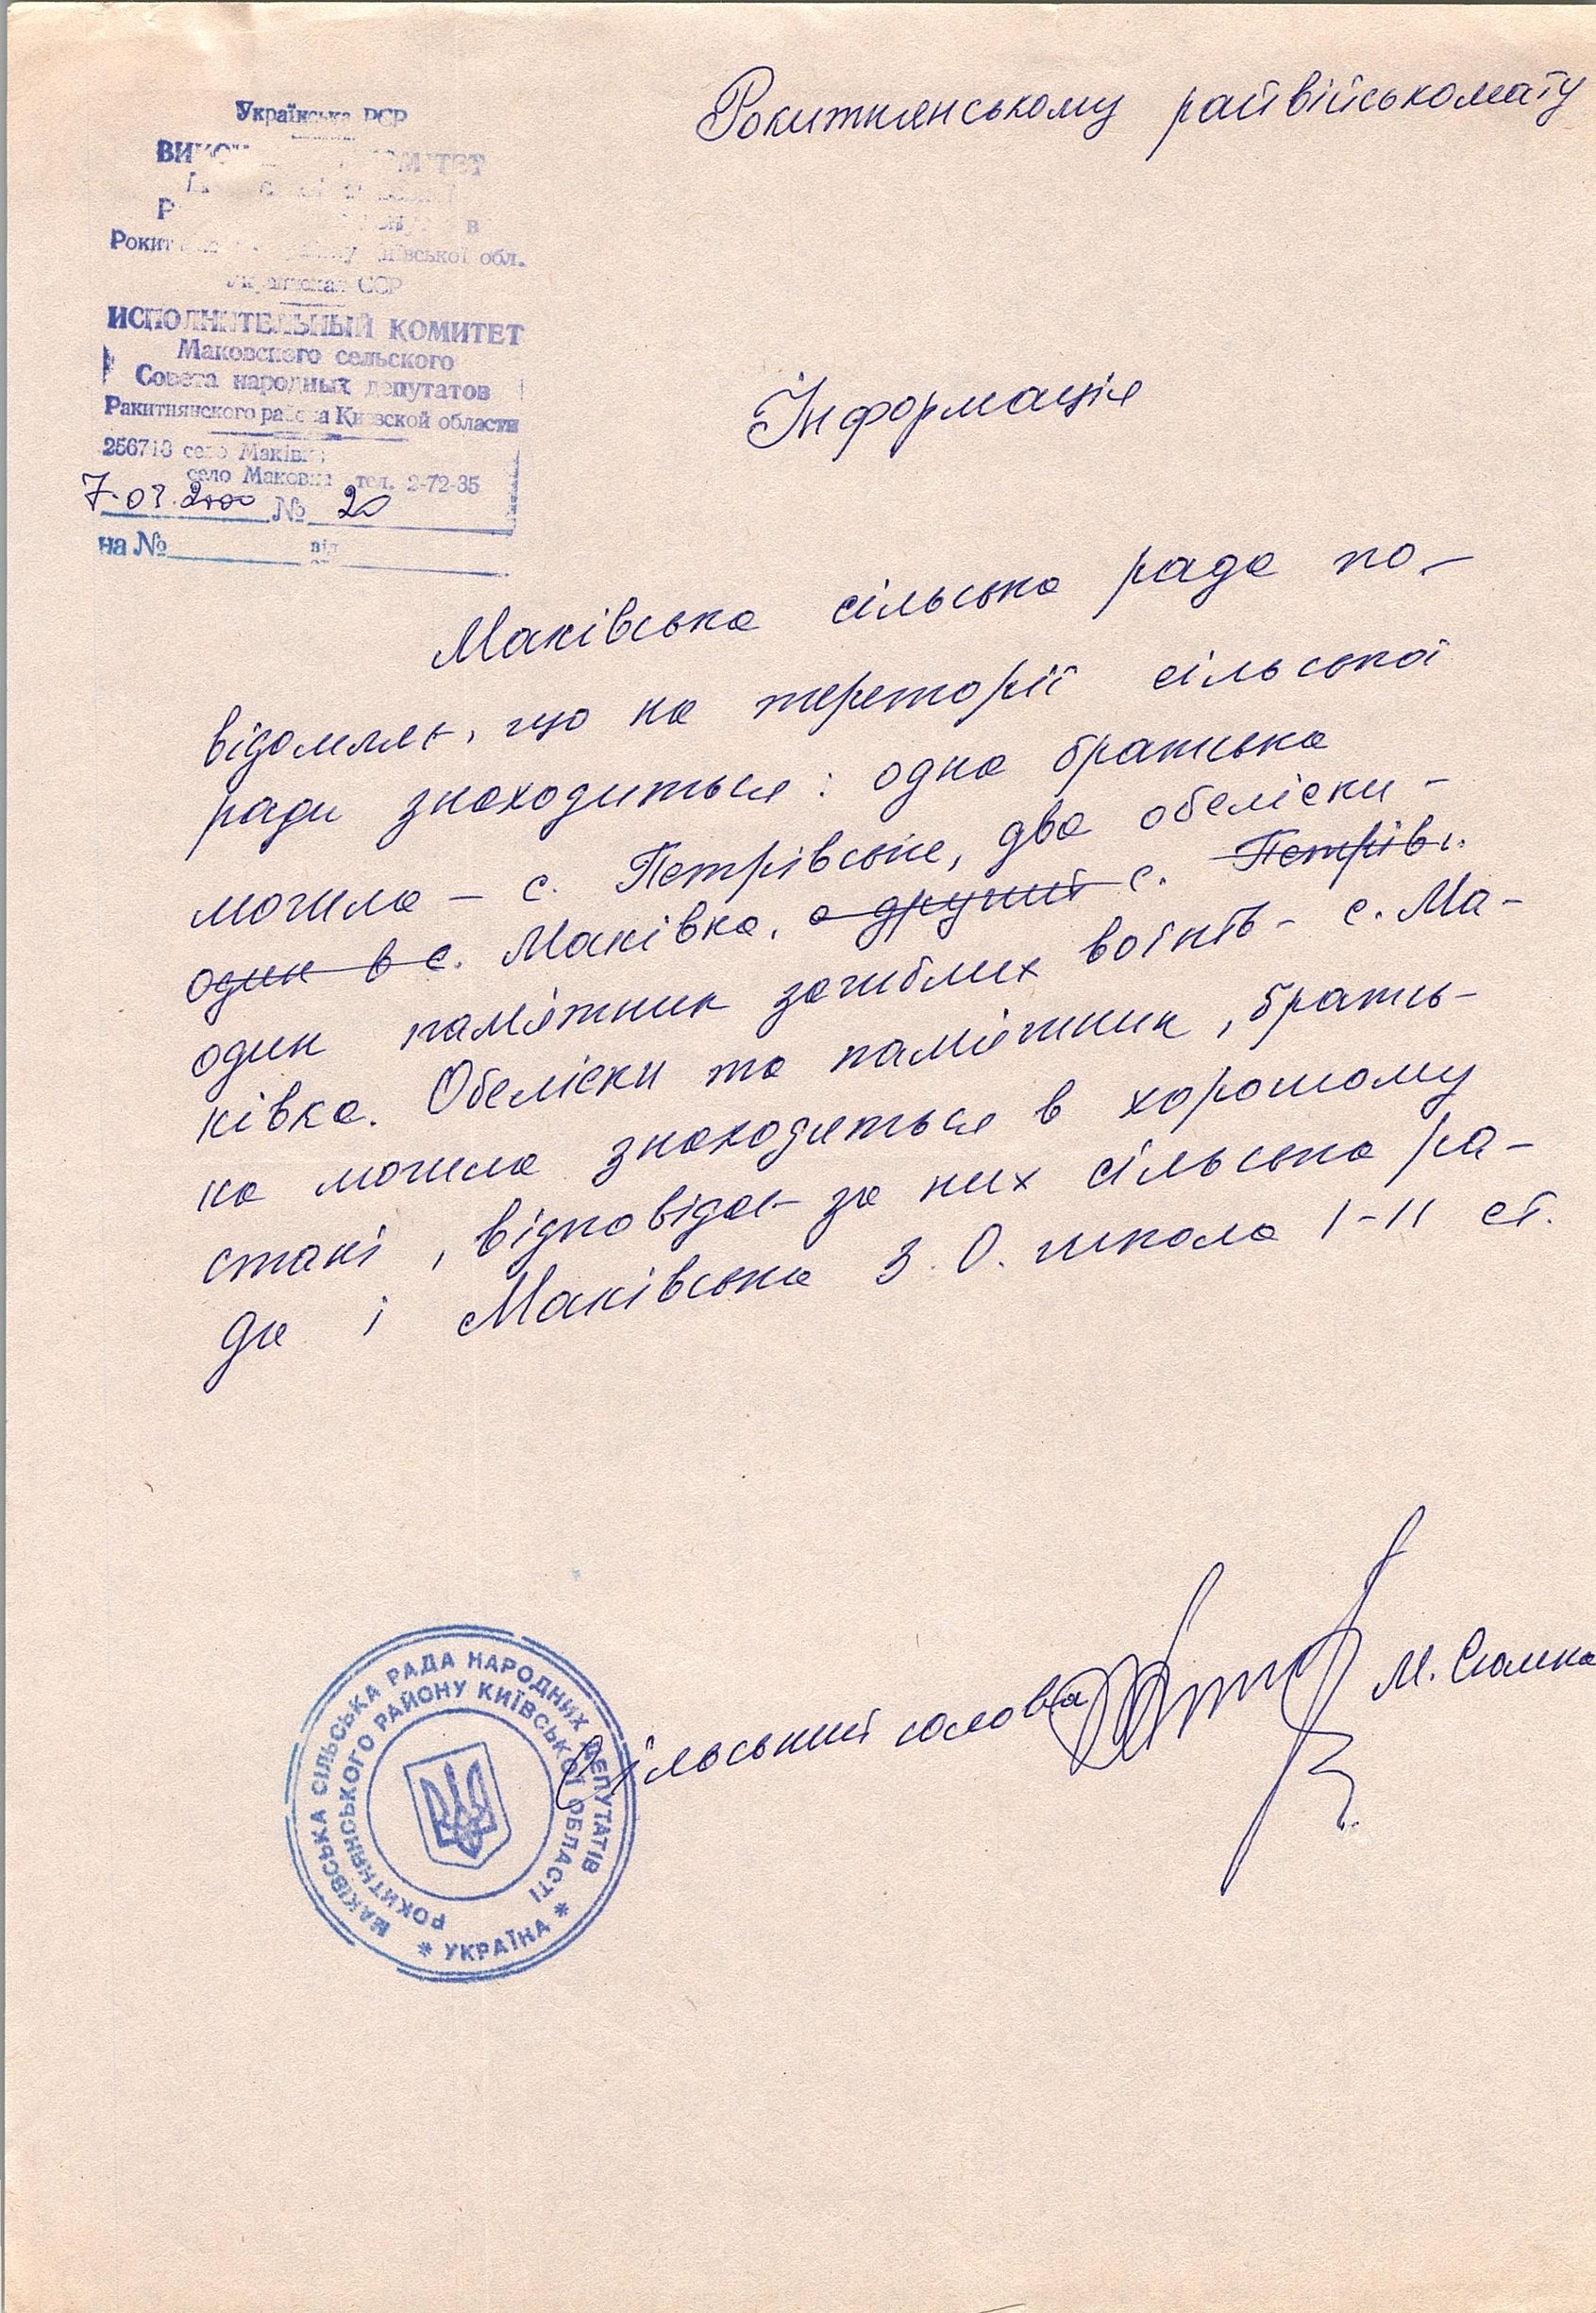 Рокитнянському райвійськомату
Українська РСР
Рокит
Київської обл.
Украинская ССР
ИСПОЛНИТЕЛЬНЫЙ КОМИТЕТ
Маковского сельского
Совета народных депутатов
Ракитнянского района Киевской области
256713 село Маківка
село Маковка тел. 2-72-35
7-03.2000 № 20
на № від
Інформація
Маківська сільська рада по-
відомляє, що на територїї сільської
ради знаходиться: одна братська
могила – с. Петрівське, два обеліски -
один в с. Маківка, а другий с. Петрівс.
один пам'ятник загиблих воїнів - с. Ма-
ківка. Обеліски та пам'ятник, братсь-
ка могила знаходяться в хорошому
стані, відповідає за них сільська ра-
да і Маківська З.О. школа І-ІІ ст.
Сільський голова М.
МАКІВСЬКА СІЛЬСЬКА РАДА НАРОДНИХ ДЕПУТАТІВ
РОКИТНЯНСЬКОГО РАЙОНУ КИЇВСЬКОЇ ОБЛАСТІ
* УКРАЇНА *